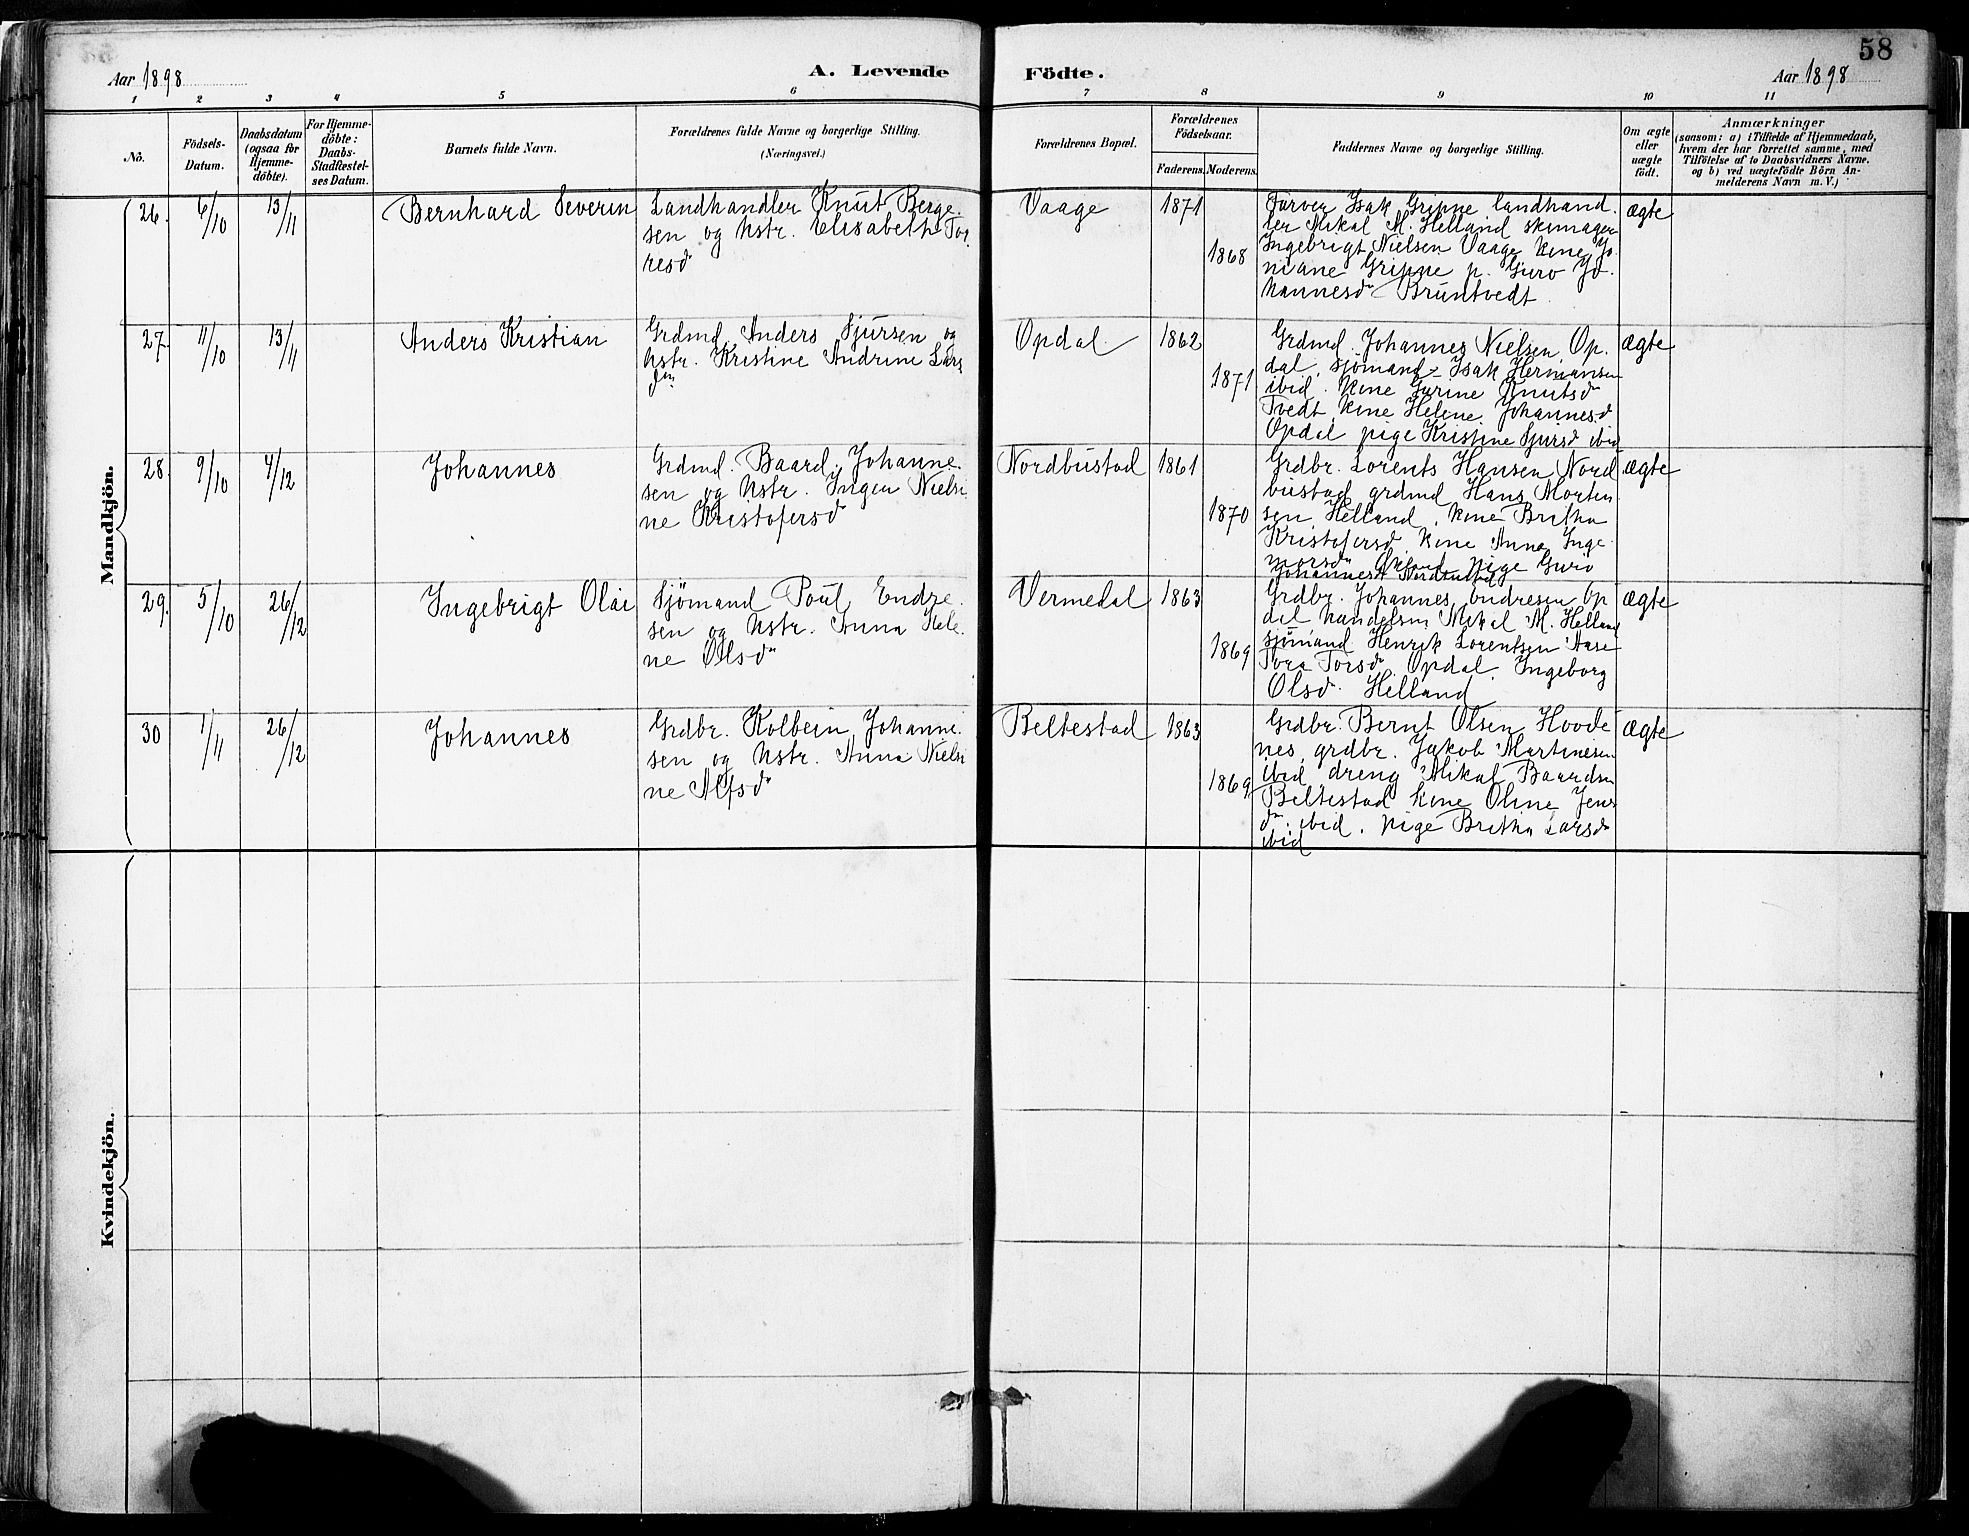 58
Aar 1898
A. Levende Födte.
Aar 1898
1 2 3 4 5 6 7 8 9 10 11
No.
Födsels-
Datum.
Daabsdatum
(ogsaa for
Hjemme-
döbte).
For Hjemme-
döbte:
Daabs-
Stadfæstel-
ses Datum.
Barnets fulde Navn.
Forældrenes fulde Navne og borgerlige Stilling.
(Næringsvei.)
Forældrenes Bopæl.
Forældrenes
Födselsaar.
Faderens. Moderens.
Faddernes Navne og borgerlige Stilling.
Om ægte
eller
uægte
födt.
Anmærkninger
(saasom: a) i Tilfælde af Hjemmedaab,
hvem der har forrettet samme, med
Tilföielse af to Daabsvidners Navne.
og b) ved uægtefödte Börn An-
melderens Navn m. V.)
Mandkjön.
26. 6/10 13/11
Bernhard Severin
Landhandler Knut Berge-
sen og Hstr. Elisabeth Tor-
resd
Vaage
1871
1868
Farver Isak Grinne landhand-
ler Mikal M. Helland skomager
Ingebrigt Nielsen Vaage kone Jo-
niane Grinne p. Guro Jo-
hannesd Bruntvedt
ægte
27. 11/10 13/11
Anders Kristian
Grdmd Anders Sjursen og
Hstr. Kristine Andrine Lars
dn
Opdal
1862
1871
Grdmd. Johannes Nielsen Op-
dal, sjömand Isak Hermansen
ibid. kone Gurine Knutsd
Tvedt kone Helene Johannesd
Opdal pige Kristine Sjursd ibid
ægte
28. 9/10 4/12
Johannes
Grdmd. Baard Johanne-
sen og Hstr. Ingen Niels-
ne Kristofersd
Nordbustad
1861
1870
Grdbr. Lorents Hansen Nord
bustad grdmd Hans Morten
sen Helland, kone Britha
Kristofersd kone Anna Inge-
morsd pige Guro
Johannesd Nordbustad
ægte
29. 5/10 26/12
Ingebrigt Olai
Sjömand Poul Endre-
sen og Hstr. Anna Hele-
ne Olsd
Vermedal
1863
1869
Grdbr. Johannes Endresen Op
dal handelsm Mikal M. Helland
sjömand Henrik Lorentsen Aase
Tora Torsd Opdal. Ingeborg
Olsd. Helland
ægte
30 1/11 26/12
Johannes
Grdbr. Kolbein Johanne-
sen og Hstr. Anna Nielsi
ne Alfsd
Beltestad
1863
1869
Grdbr. Bernt Olsen Hovde
nes, grdbr. Jakob Martinesen
ibid dreng Mikal Baardsen
Beltestad kone Oline Jens
dn. ibid. pige Britha Larsd
ibid
ægte
Kvindekjön.